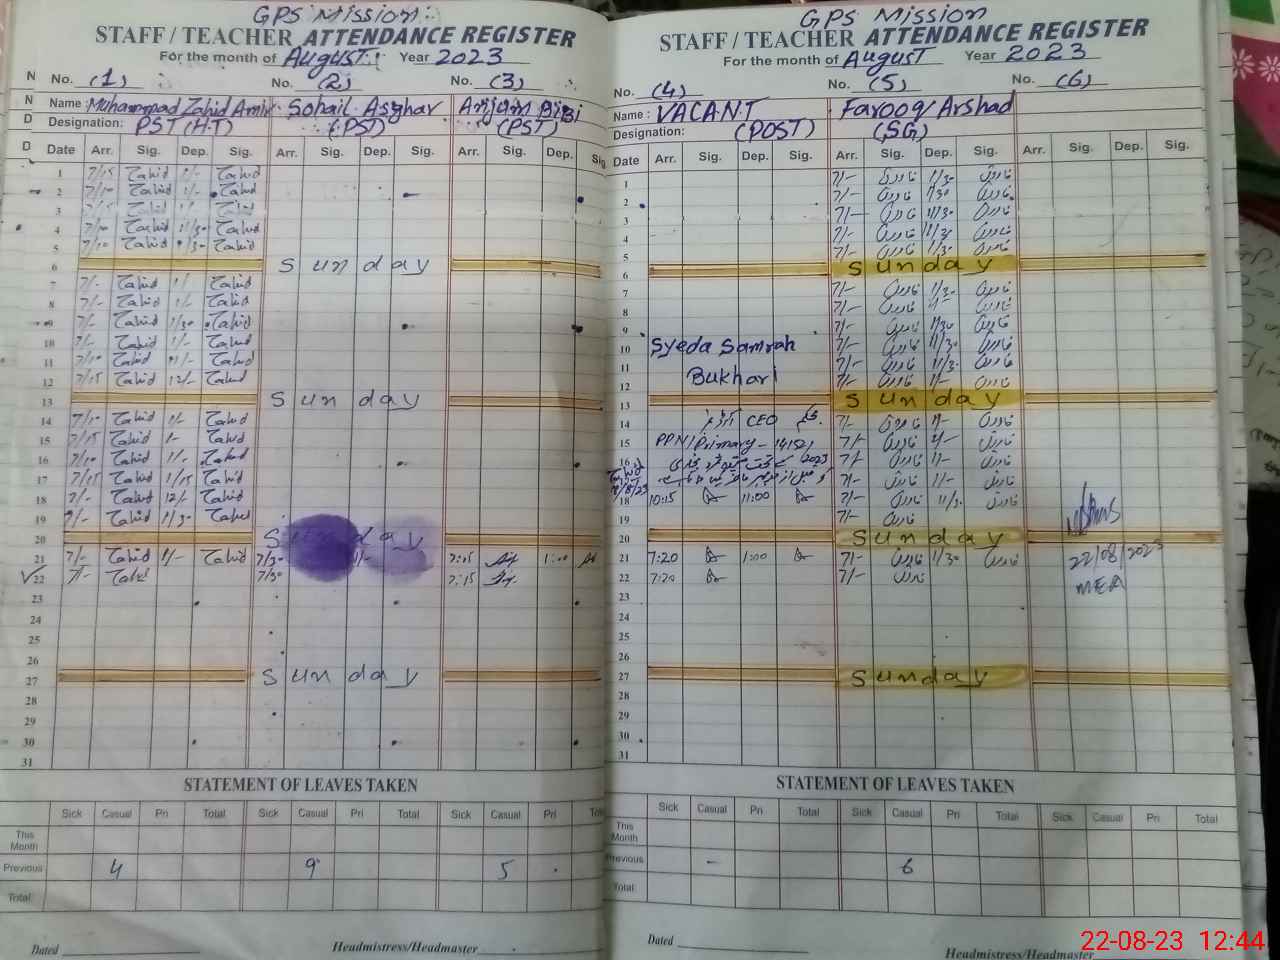 GPS Mission
STAFF / TEACHER ATTENDANCE REGISTER
For the month of August Year 2023
No. (1) No. (2) No. (3)
Name : Muhammad Zahid Amir Sohail Asghar Anjum Bibi
Designation: PST (H.T) (PST) (PST)
Date Arr. Sig. Dep. Sig. Arr. Sig. Dep. Sig. Arr. Sig. Dep. Sig
1 7/15 Zahid 1/- Zahid
2 7/10 Zahid 1/- Zahid
3 7/15 Zahid 1/- Zahid
4 7/10 Zahid 11/30 Zahid
5 7/10 Zahid /30 Zahid
6 Sunday
7 7/- Zahid 1/ Zahid
8 7/- Zahid 1/- Zahid
9 7/- Zahid 1/30 Zahid
10 7/- Zahid 1/- Zahid
11 7/10 Zahid 11/- Zahid
12 7/15 Zahid 12/- Zahid
13 Sunday
14 7/10 Zahid 1/- Zahid
15 7/15 Zahid 1- Zahid
16 7/10 Zahid 1/- Zahid
17 7/15 Zahid 1/15 Zahid
18 7/- Zahid 12/- Zahid
19 7/- Zahid 1/30 Zahid
20 Sunday
21 7/- Zahid 1/- Zahid 7/30 1/- 7:15 1:00
22 7/- Zahid 7/30 7:15
23
24
25
26
27 Sunday
28
29
30
31
STATEMENT OF LEAVES TAKEN
Sick Casual Pri Total Sick Casual Pri Total Sick Casual Pri Total
This Month
Previous 4 9 5
Total:
Dated Headmistress/Headmaster
GPS Mission
STAFF / TEACHER ATTENDANCE REGISTER
For the month of August Year 2023
No. (4) No. (5) No. (6)
Name : VACANT Farooq Arshad
Designation: (POST) (SG)
Date Arr. Sig. Dep. Sig. Arr. Sig. Dep. Sig. Arr. Sig. Dep. Sig.
1 7/- فاروق 1/30 فاروق
2 7/- فاروق 1/30 فاروق
3 7/- فاروق 11/30 فاروق
4 7/- فاروق 11/30 فاروق
5 7/- فاروق 1/30 فاروق
6 Sunday
7 7/- فاروق 1/30 فاروق
8 7/- فاروق 1/- فاروق
9 7/- فاروق 1/30 فاروق
10 Syeda Samrah 7/- فاروق 11/30 فاروق
11 7/- فاروق 11/30 فاروق
12 Bukhari 7/- فاروق 1/- فاروق
13 Sunday
14 CEO 7/- فاروق 1/- فاروق
15 PPN/Primary - 14152/ 7/- فاروق 1/- فاروق
16 2023 7/- فاروق 1/- فاروق
17 7/- فاروق 11/- فاروق
18 10:15 11:00 7/- فاروق 11/30 فاروق
19 7/- فاروق
20 Sunday
21 7:20 1:00 7/- فاروق 1/30 فاروق 22/08/2023
22 7:20 7/- فاروق MEA
23
24
25
26
27 Sunday
28
29
30
31
STATEMENT OF LEAVES TAKEN
Sick Casual Pri Total Sick Casual Pri Total Sick Casual Pri Total
This Month
Previous - 6
Total:
Dated Headmistress/Headmaster
22-08-23 12:44